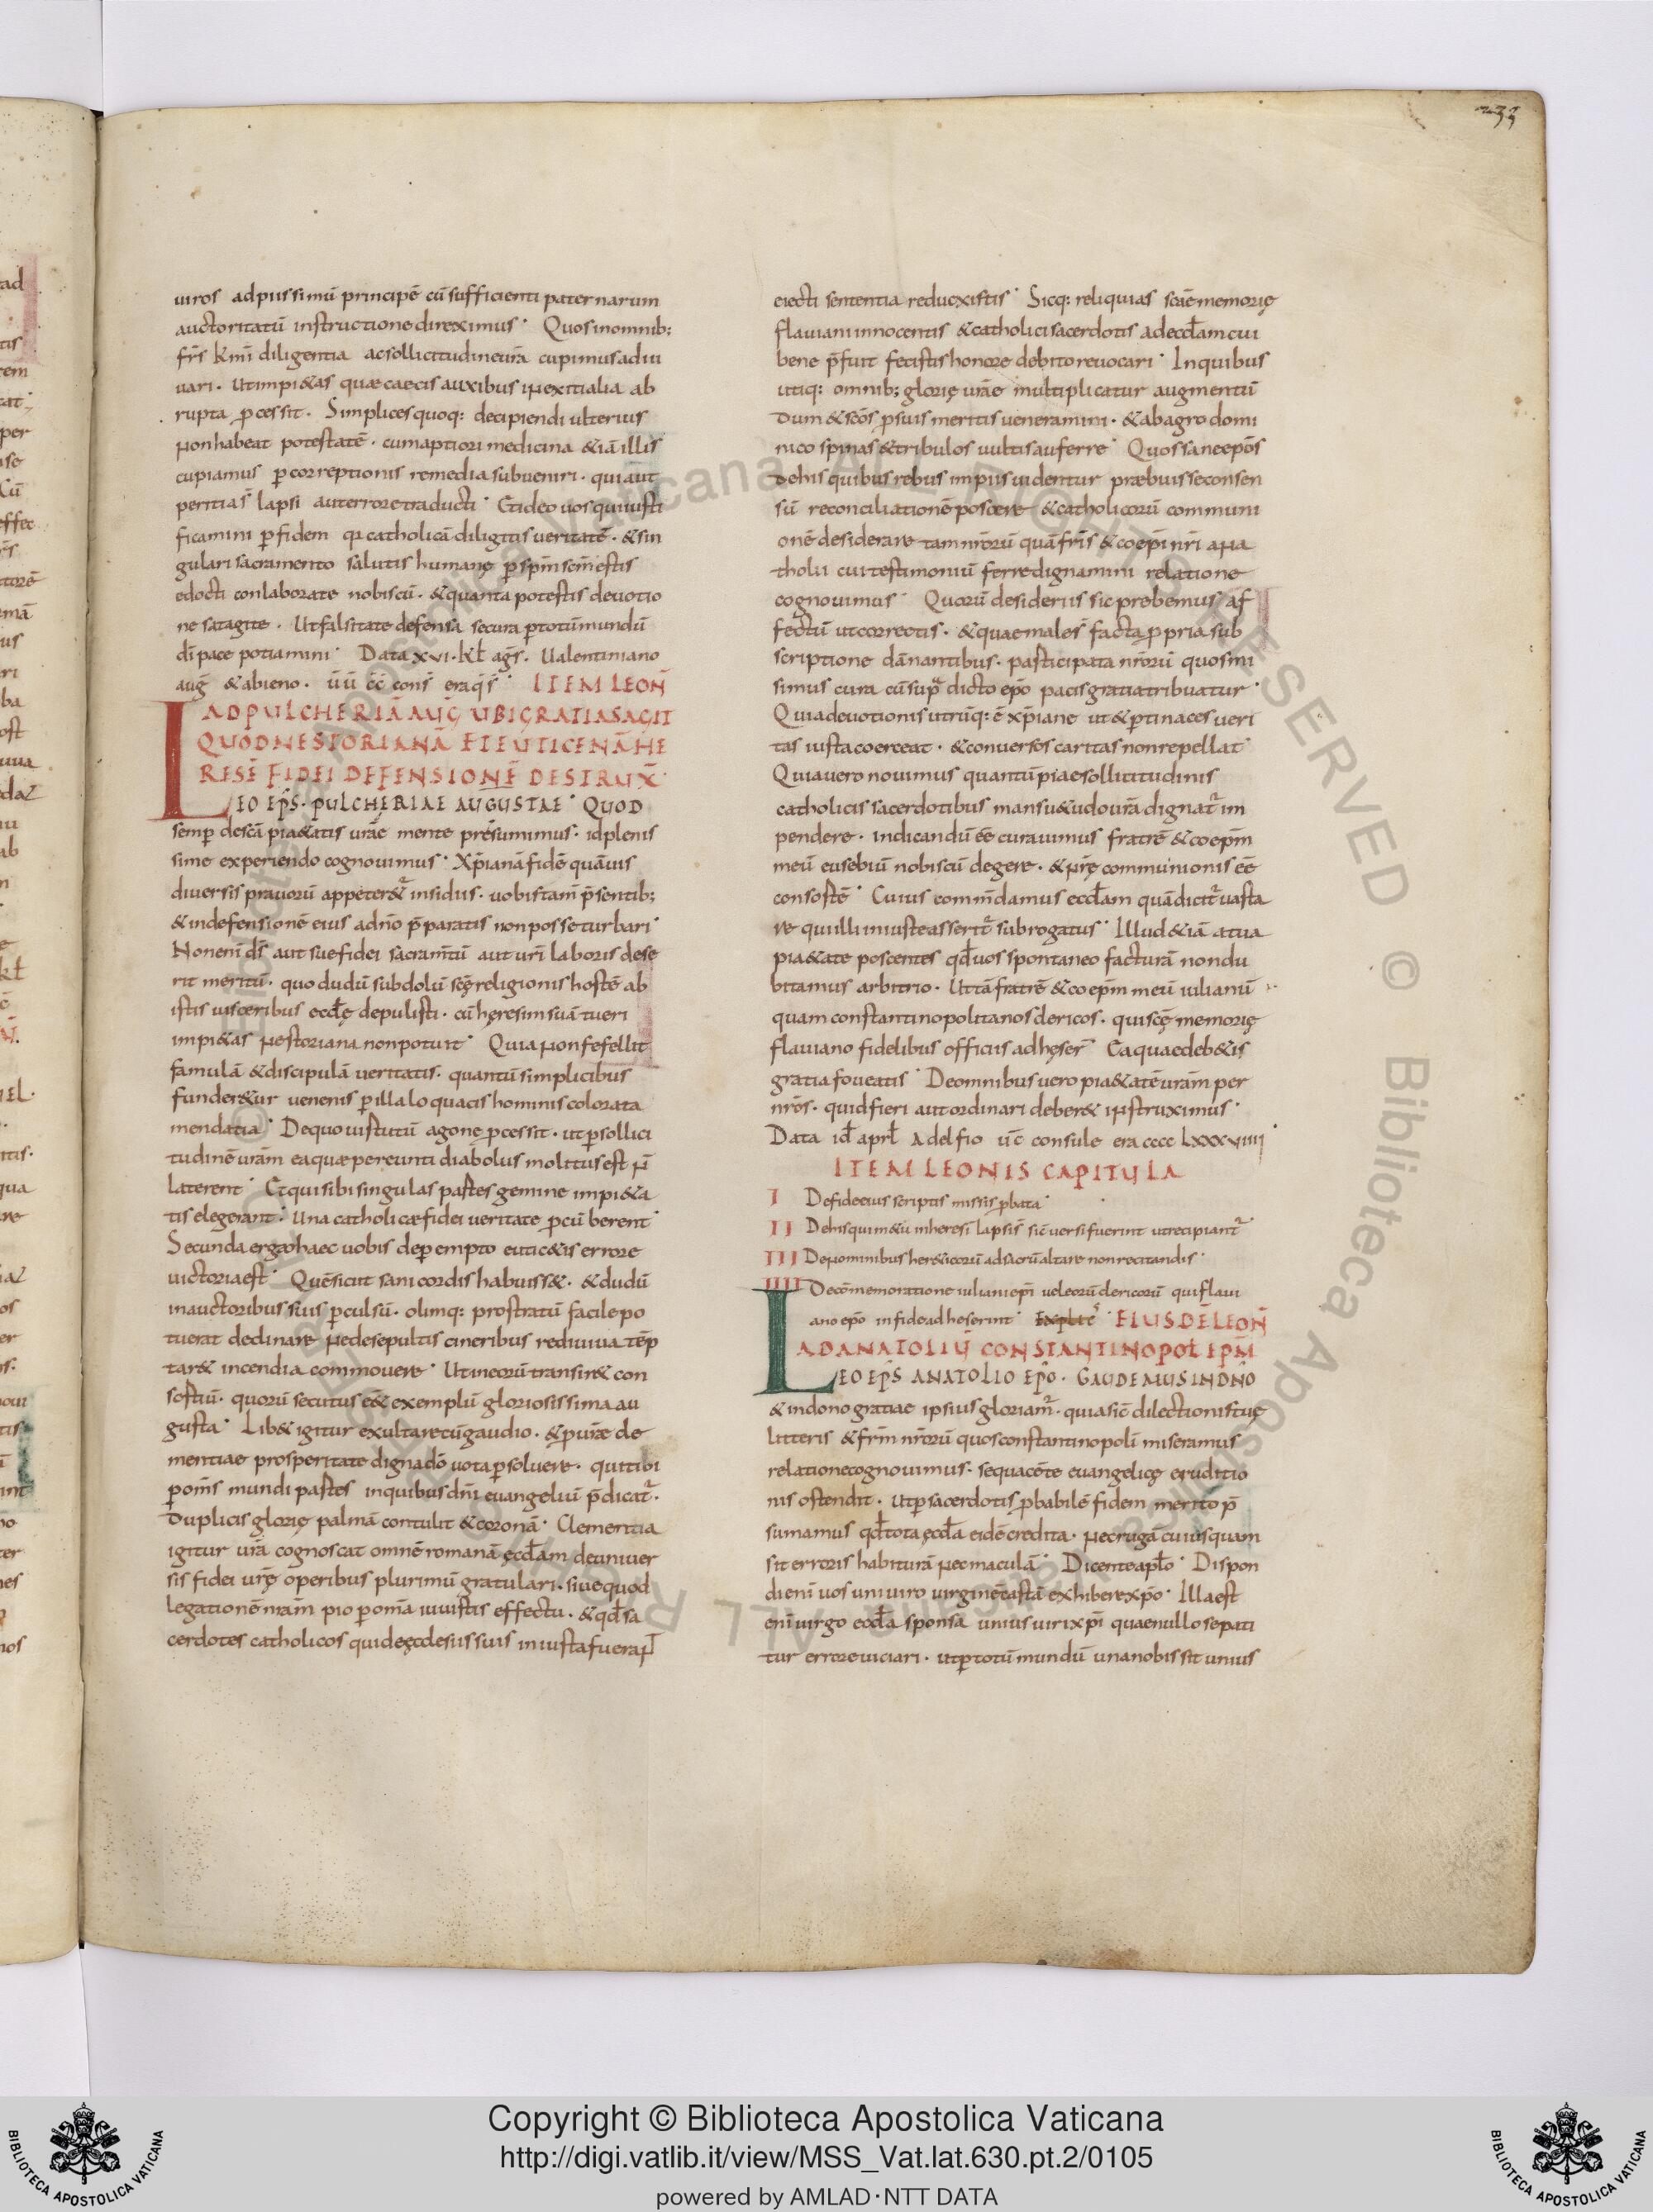 233
uiros ad piissimū principē cū sufficienti paternarum
auctoritatū instructione direximus · Quos in omnib;
fr̄is kmi diligentia ac sollicitudine ur̄a cupimus adiu
uari · ut impi&as quae caecis ausibus in exitialia ab
rupta p̄cessit · Simplices quoq; decipiendi ulterius
non habeat potestatē · cum aptiori medicina &iā illis
cupiamus p correptionis remedia subueniri · qui aut
peritias lapsi aut errore traducti · Et ideo uos qui iusti
ficamini p fidem qr catholicā diligitis ueritatē · & sin
gulari sacramento salutis humanę p sp̄m sc̄m estis
edocti conlaborate nobiscū · & quanta potestis deuotio
ne satagite · Ut falsitate defensa secura p totū mundū
dī pace potiamini · Data xvi · kł ag̅s · Ualentiniano
aug̅ & abieno · ūū c̄c̄ cons̄ era q̄ s̄ · ITEM LEON̄
AD PULCHERIĀ AUG̅ UBI GRATIAS AGIT
QUOD NESTORIANĀ ET EUTICENĀ HE
RESĒ FIDEI DEFENSIONĒ DESTRUX̄
LEO EP̄S · PULCHERIAE AUGUSTAE · QUOD
semp de sc̄a pia&atis ur̄ae mente presumimus · id plenis
sime experiendo cognouimus · Xp̄ianā fidē quāuis
diuersis prauorū appeter&ᷓ insidiis · uobis tam p̄sentib;
& in defensionē eius a dn̄o p̄paratis non posse turbari ·
Non enī d̄s aut sue fidei sacram̄tū aut ur̄i laboris dese
rit meritū · quo dudū subdolū sc̄ę religionis hostē ab
istis uisceribus eccłę depulisti · cū hęresim suā tueri
impi&as nestoriana non potuit · Quia non fefellit
famulā & discipulā ueritatis · quantū simplicibus
funder&ur uenenis p illa loquacis hominis colorata
mendatia · De quo iustutū agone p̄cessit · ut p sollici
tudinē ur̄am ea quae pereunti diabolus molitus est n̄
laterent · Et qui sibi singulas partes gemine impi&a
tis elegerant · Una catholicae fidei ueritate p̄cūberent
Secunda ergo haec uobis de pempto eutic&is errore
uictoria est · Quē sicut sani cordis habuiss& · & dudū
in auctoribus suis p̄culsū · olimq; prostratū facile po
tuerat declinare ne de sepultis cineribus rediuiua tēp
tar& incendia commouere · Ut in eorū transir& con
sortiū · quorū secutus ē& exemplū gloriosissima au
gusta · Lib& igitur exultare cū gaudio · & p ur̄ae cle
mentiae prosperitate dignā dō uota psoluere · qui tibi
p om̄s mundi partes in quibus dn̄i euangeliū p̄dicatᷓ ·
duplicis glorię palmā contulit & coronā · Clementia
igitur ur̄a cognoscat omnē romanā ęccłam de uniuer
sis fidei ur̄ę operibus plurimū gratulari · siue quod
legationē nr̄am pio p om̄a iuuistis effectu · & qđ sa
cerdotes catholicos qui de ęcclesiis suis iniusta fuerant
eiecti sententia reduxistis · Sicq; reliquias sc̄ae memorię
flauiani innocentis & catholici sacerdotis ad eccłam cui
bene p̄fuit fecistis honore debito reuocari · In quibus
utiq; omnib; glorię ur̄ae multiplicatur augmentū
dum & sc̄os p suis meritis ueneramini · & ab agro domi
nico spinas & tribulos uultis auferre · Quos sane ep̄os
de his quibus rebus impiis uidentur praebuisse consen
sū reconciliationē poscere & catholicorū communi
onē desiderare tam nr̄orū quā fr̄is & coep̄i nr̄i ana
tholii cui testimoniū ferre dignamini relatione
cognouimus · Quorū desideriis sic prebemus af
fectū ut correctis · & quae males facta p̄pria sub
scriptione dānantibus · participata nr̄orū quos mi
simus cura cū supᷓ dicto ep̄o pacis gratia tribuatur ·
Quia deuotionis utrūq; ē xp̄iane ut & ptinaces ueri
tas iusta coerceat · & conuersos caritas non repellat ·
Quia uero nouimus quantū piae sollicitudinis
catholicis sacerdotibus mansu&udo ur̄a dignatᷓ im
pendere · indicandū ēe curauimus fratrē & coep̄m
meū eusebiū nobiscū degere · & nr̄ę communionis ēe
consortē · Cuius comm̄damus eccłam quā dicitᷓ uasta
re qui illi iniuste asseritᷓ subrogatus · Illud &iā a tua
pia&ate poscentes qđ uos spontaneo facturā non du
bitamus arbitrio · Ut tā fratrē & coep̄m meū iulianū
quam constantinopolitanos clericos · qui sc̄ę memorię
flauiano fidelibus officiis adhęser̄ · Ea quae deb&is
gratia foueatis · De omnibus uero pia&atē ur̄am per
nr̄os · quid fieri aut ordinari deber& instruximus ·
Data iđ aprł Adelfio ūc̄ consule era cccc lxxxviiii ·
ITEM LEONIS CAPITULA
I De fide eius scriptis missis p̄bata ·
II De his qui m&ū in heresī lapsi s̄ sic uersi fuerint ut recipiantᷓ
III De nominibus her&icorū ad sacrū altare non recitandis ·
IIII De cōmemoratione iuliani ep̄i uel eorū clericorū qui flaui
ano ep̄o in fide adheserint · EIUSDĒ LEON̄
AD ANATOLIŪ CONSTANTINOPOŁ EP̄M
LEO EP̄S ANATOLIO EP̄O · GAUDEMUS IN DN̄O
& in dono gratiae ipsius gloriam̄ᷓ · quia sic̄ dilectionis tuę
litteris & fr̄m nr̄orū quos constantinopolī miseramus
relatione cognouimus · sequacē te euangelicę eruditio
nis ostendit · Ut p sacerdotis p̄babilē fidem merito p̄
sumamus qđ tota ęccła eidē credita · nec rugā cuiusquam
sit erroris habiturā nec maculā · Dicente apło · Dispon
di enī uos uni uiro uirginē castā exhibere xp̄o · Illa est
enī uirgo eccła sponsa unius uiri xp̄i quae nullo se pati
tur errore uiciari · ut p totū mundū una nobis sit unius
Copyright © Biblioteca Apostolica Vaticana
http://digi.vatlib.it/view/MSS_Vat.lat.630.pt.2/0105
powered by AMLAD·NTT DATA
BIBLIOTECA APOSTOLICA VATICANA
BIBLIOTECA APOSTOLICA VATICANA